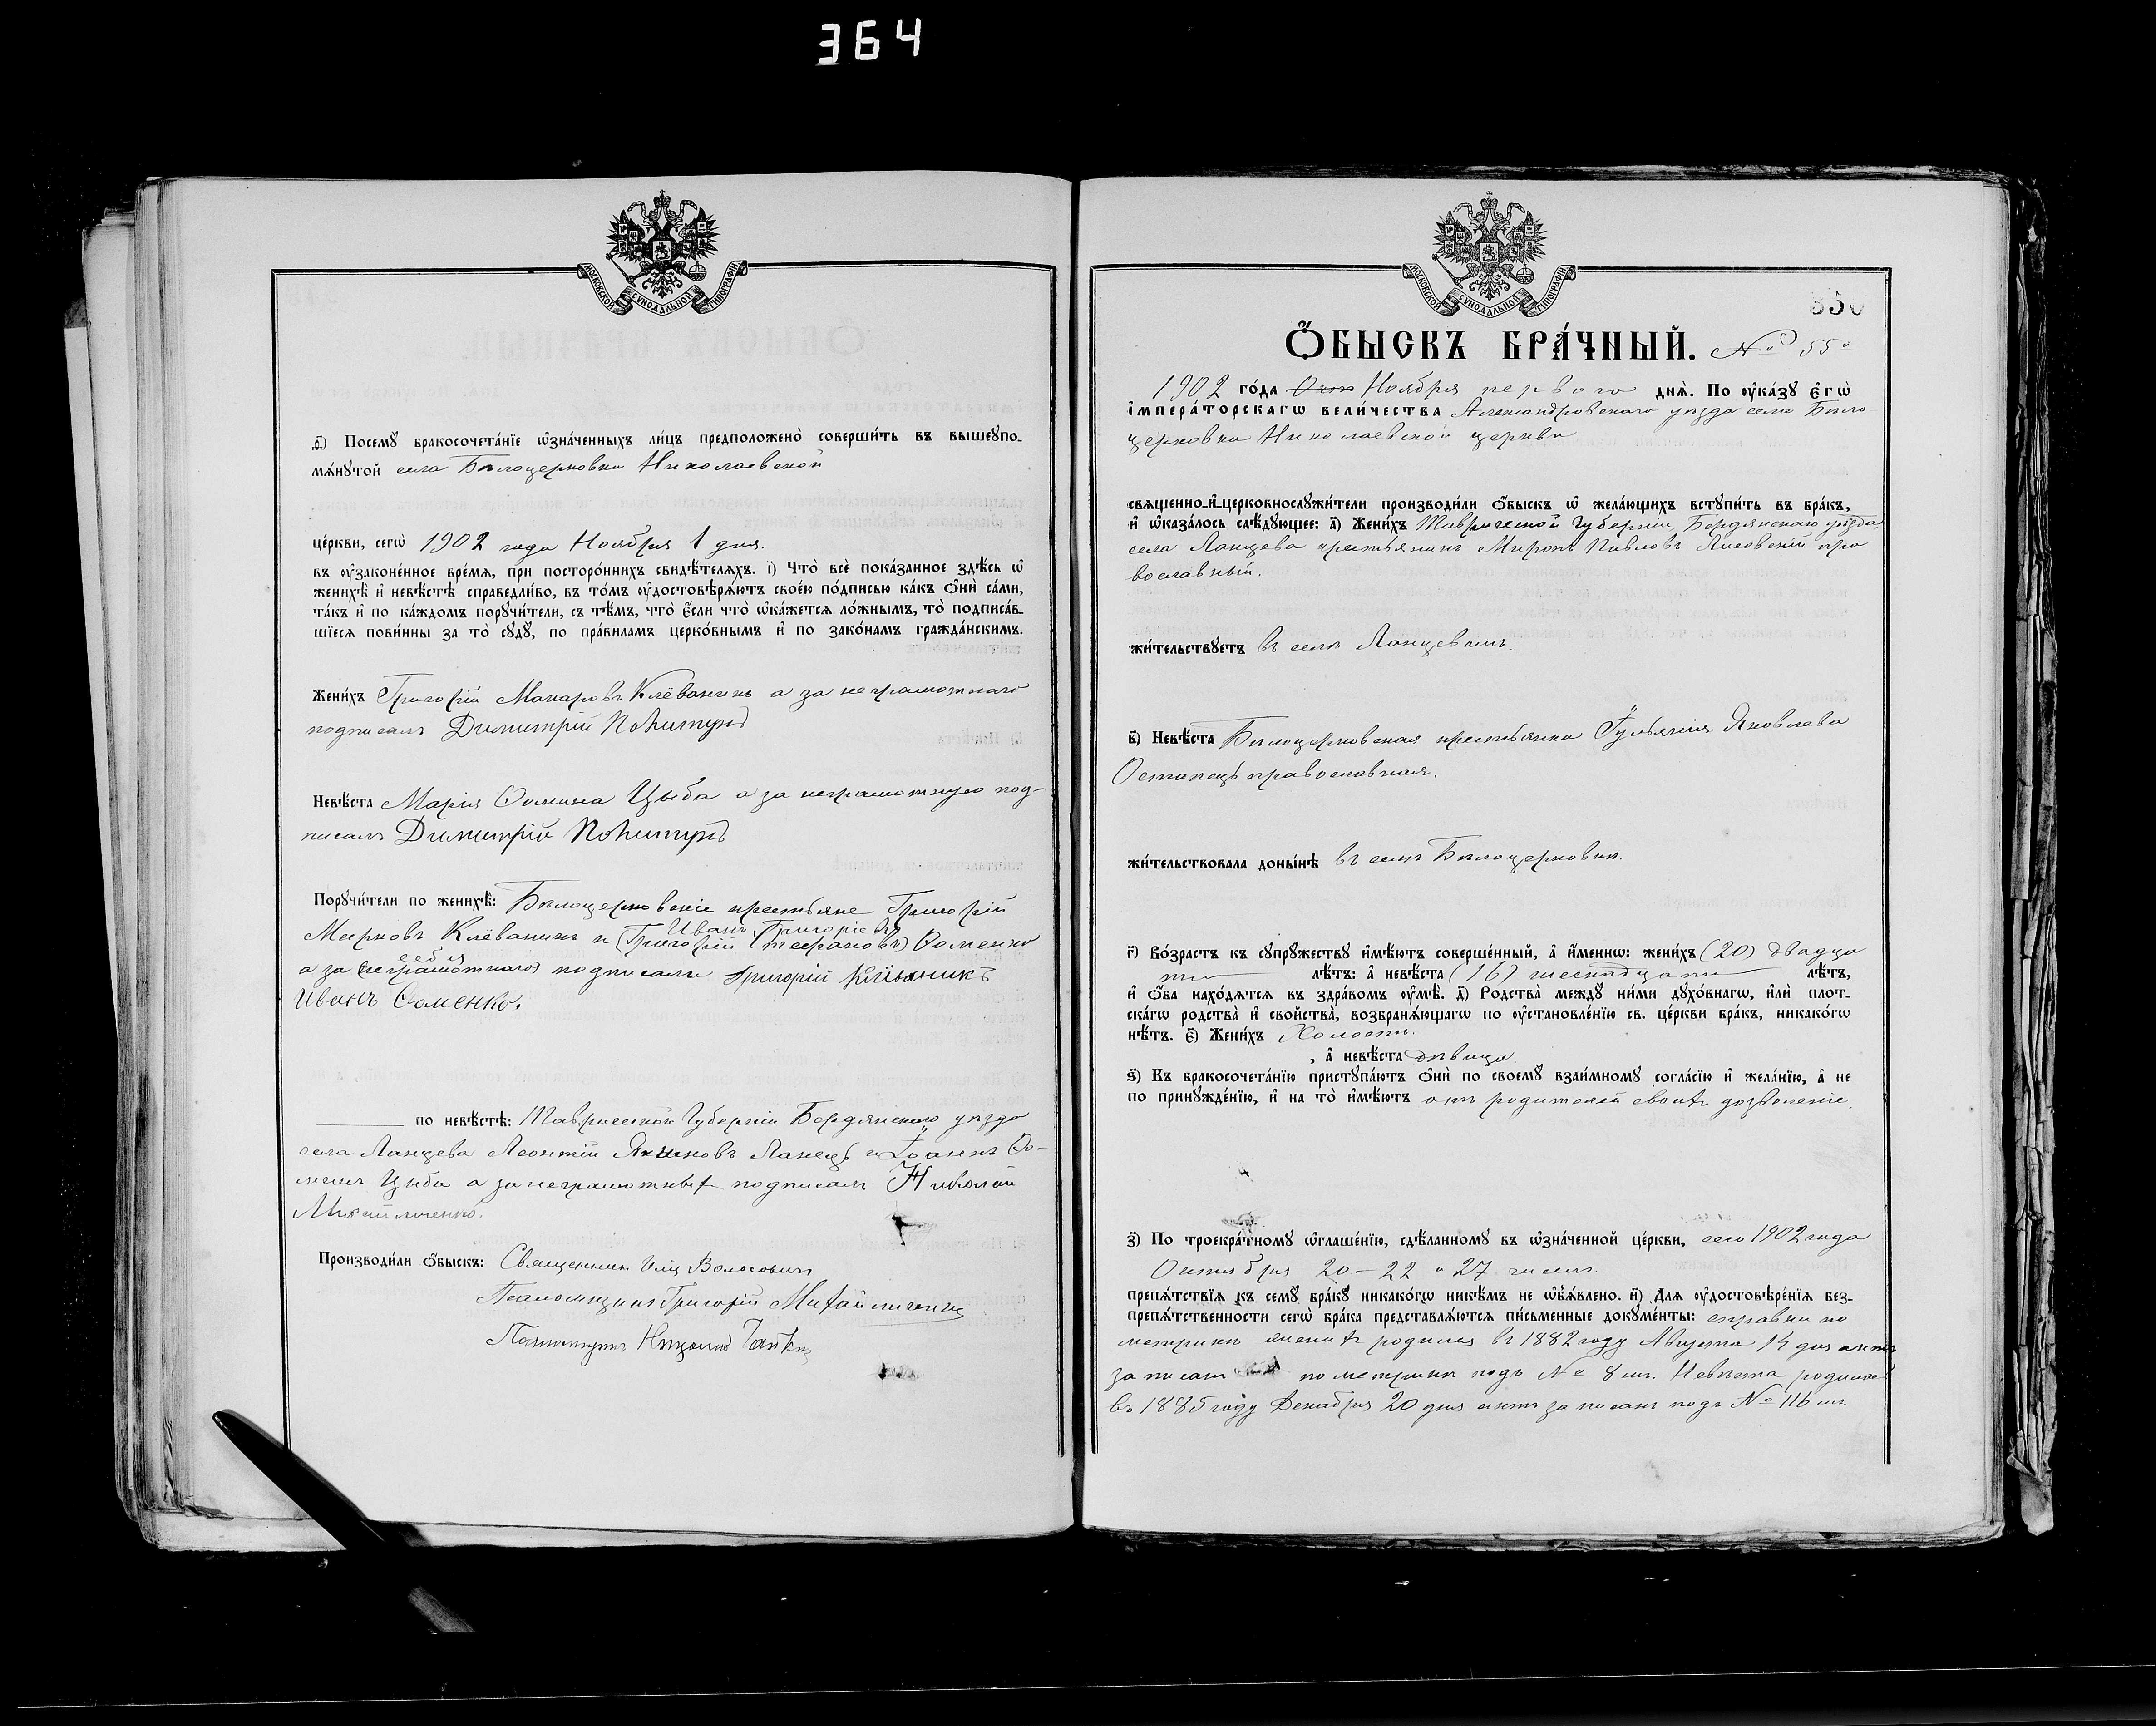 364
МОСКОВСКОЙ СѴНОДАЛЬНОЙ ТИПОГРАФІИ
ѳ҃) Посемꙋ̀ бракосочета́нїе ѡ҆зна́ченныхъ ли́цъ предположено̀ соверши́ть въ вышеꙋпо-
мѧ́нꙋтой села Бѣлоцерковки Николаевской
це́ркви, сегѡ̀ 1902 года Ноября 1 дня.
въ ᲂу҆зако́ненное вре́мѧ, при посторо́ннихъ свидѣ́телѧхъ. і҃) Что̀ всѐ пока́занное здѣ́сь ѡ҆
женихѣ̀ и҆ невѣ́стѣ справедли́во, въ то́мъ ᲂу҆достовѣрѧ́ютъ свое́ю по́дписью ка́къ ѻ҆нѝ са́ми,
та́къ и҆ по ка́ждомъ порꙋчи́тели, съ тѣ́мъ, что̀ є҆́сли что̀ ѡ҆ка́жетсѧ ло́жнымъ, то̀ подписа́в-
шїесѧ пови́нны за то̀ сꙋдꙋ̀, по пра́виламъ церко́внымъ и҆ по зако́намъ гражда́нскимъ.
Жени́хъ Григорій Макаровъ Клёваникъ а за неграмотнаго
подписалъ Димитрій
Невѣ́ста Марія Ѳомина Цыба а за неграмотную под-
писалъ Димитрій
Порꙋчи́тели по женихѣ̀: Бѣлоцерковскіе крестьяне Григорій
Иванъ Григоріевъ
Клёваникъ и (Григорій Стефановъ) Ѳоменко
себя
а за неграмотнаго подписали Григорій Клїваникъ
Иванъ Фоменко.
по невѣ́стѣ: Таврической Губерніи Бердянскаго уѣзда
села Ланцева Леонтій Ланецъ и Іоаннъ Ѳо-
минъ Цыба а за неграмотныхъ подписалъ Николай
Михайличенко.
Производи́ли ѻ҆́быскъ: Священникъ Волосовичъ
Псаломщикъ Григорій Михайличенко
МОСКОВСКОЙ СѴНОДАЛЬНОЙ ТИПОГРАФІИ
350
Ѻ҆́БЫСКЪ БРА́ЧНЫЙ. № 55й
1902 го́да Окт Ноября перваго днѧ̀. По ᲂу҆ка́зꙋ є҆гѡ̀
і҆мпера́торскагѡ вели́чества Александровскаго уѣзда села Бѣло
церковки Николаевской церкви
свѧщенно-и҆-церковнослꙋжи́тели производи́ли ѻ҆́быскъ ѡ҆ жела́ющихъ встꙋпи́ть въ бра́къ,
и҆ ѡ҆каза́лось слѣ́дꙋющее: а҃) Жени́хъ Таврической Губерніи Бердянскаго уѣзда
села Ланцева крестьянинъ Миронъ Павловъ Лисовскій пра
вославный.
жи́тельствꙋетъ въ селѣ Ланцевомъ.
в҃) Невѣ́ста Бѣлоцерковская крестьянка Іульянія Яковлева
Остапецъ православная.
жи́тельствовала доны́нѣ въ селѣ Бѣлоцерковкѣ.
г҃) Во́зрастъ къ сꙋпрꙋ́жествꙋ и҆мѣ́ютъ соверше́нный, а҆ и҆́менно: жени́хъ (20) двадца
ти лѣ́тъ: а҆ невѣ́ста (16) шестнадцати лѣ́тъ,
и҆ ѻ҆́ба нахо́дѧтсѧ въ здра́вомъ ᲂу҆мѣ̀. д҃) Родства̀ междꙋ̀ ни́ми дꙋхо́внагѡ, и҆лѝ пло́т-
скагѡ родства̀ и҆ сво́йства, возбранѧ́ющагѡ по ᲂу҆становле́нїю св. це́ркви бра́къ, никако́гѡ
нѣ́тъ. є҃) Жени́хъ Холостъ.
, а҆ невѣ́ста дѣвица
ѕ҃) Къ бракосочета́нїю пристꙋпа́ютъ ѻ҆нѝ по своемꙋ̀ взаи́мномꙋ согла́сїю и҆ жела́нїю, а҆ не
по принꙋжде́нїю, и҆ на то̀ и҆мѣ́ютъ отъ родителей своихъ дозволеніе.
з҃) По троекра́тномꙋ ѡ҆глаше́нїю, сдѣ́ланномꙋ въ ѡ҆зна́ченной це́ркви, сего 1902 года
Октября 20 – 22 и 27 чиселъ
препѧ́тствїѧ къ семꙋ̀ бра́кꙋ никако́гѡ никѣ́мъ не ѡ҆б̾ѧ́влено. и҃) Длѧ ᲂу҆достовѣре́нїѧ без-
препѧ́тственности сегѡ̀ бра́ка представлѧ́ютсѧ пи́сьменные докꙋме́нты: справки по
метрикѣ женихъ родился въ 1882 году Августа 14 дня актъ
записанъ по метрикѣ подъ № 8 м. Невѣста родилась
въ 1885 году Декабря 20 дня актъ записанъ подъ № 116 ж.